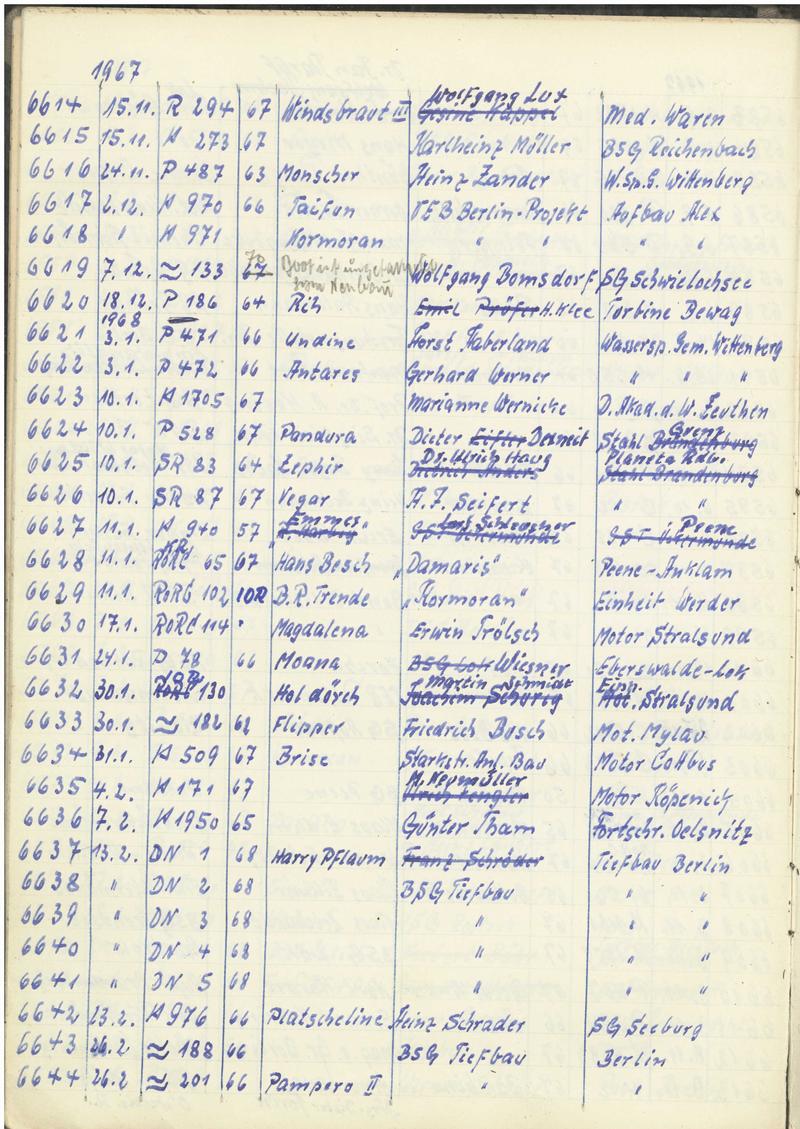 1967
6614 15.11. R 294 67 Windsbraut III Wolfgang Lut Med. Waren
6615 15.11. H 273 67 Karlheinz Möller BSG Reichenbach
6616 24.11. P 487 63 Monscher Heinz Zander W.Sp.G. Wittenberg
6617 2.12. H 970 66 Taifun VEB Berlin-Projekt Aufbau Alex
6618 " H 971 Kormoran " " "
6619 7.12. ≈ 133 67 Boot ist Neubau Wolfgang Bomsdorf SG Schwielochsee
6620 18.12. P 186 64 Rih Emil Pröfer H. Klee Turbine Bewag
1968
6621 3.1. P 471 66 Undine Horst Haberland Wassersp. Gem. Wittenberg
6622 3.1. P 472 66 Antares Gerhard Werner " "
6623 10.1. H 1705 67 Marianne Wernicke D. Akad. d. W. Zeuthen
6624 10.1. P 528 67 Pandura Dieter Eifter Demeit Stahl Brandenburg
6625 10.1. SR 83 64 Zephir Dr. Ulrich Haug Dietner Anders Planeta Rdb. Stahl Brandenburg
6626 10.1. SR 87 67 Vegar H. F. Seifert " "
6627 11.1. H 940 57 Emmes GST Ückermünde Peene GST Ückermünde
6628 11.1. RORC 65 67 Hans Besch „Damaris" Peene-Anklam
6629 11.1. RORC 102 10R B.R. Trende „Kormoran" Einheit Werder
6630 17.1. RORC 114 " Magdalena Erwin Trölsch Motor Stralsund
6631 24.1. P 78 66 Moana BSG Lok Wiesner Eberswalde-Lok
6632 30.1. 130 Hol dörch Martin Schmidt Joachim Schurig Mot. Stralsund
6633 30.1. ≈ 182 62 Flipper Friedrich Bosch Mot. Mylau
6634 31.1. H 509 67 Brise Starkstr. Anl. Bau Motor Cottbus
6635 4.2. H 171 67 M. Neumüller Ulrich Kengler Motor Köpenick
6636 7.2. H 1950 65 Günter Tham Fortschr. Oelsnitz
6637 13.2. DN 1 68 Harry Pflaum Franz Schröder Tiefbau Berlin
6638 DN 2 68 BSG Tiefbau " "
6639 " DN 3 68 " " "
6640 " DN 4 68 " " "
6641 " DN 5 68 " " "
6642 23.2. H 976 66 Platscheline Heinz Schrader SG Seeburg
6643 26.2 ≈ 188 66 BSG Tiefbau Berlin
6644 26.2 ≈ 201 66 Pampero II " "